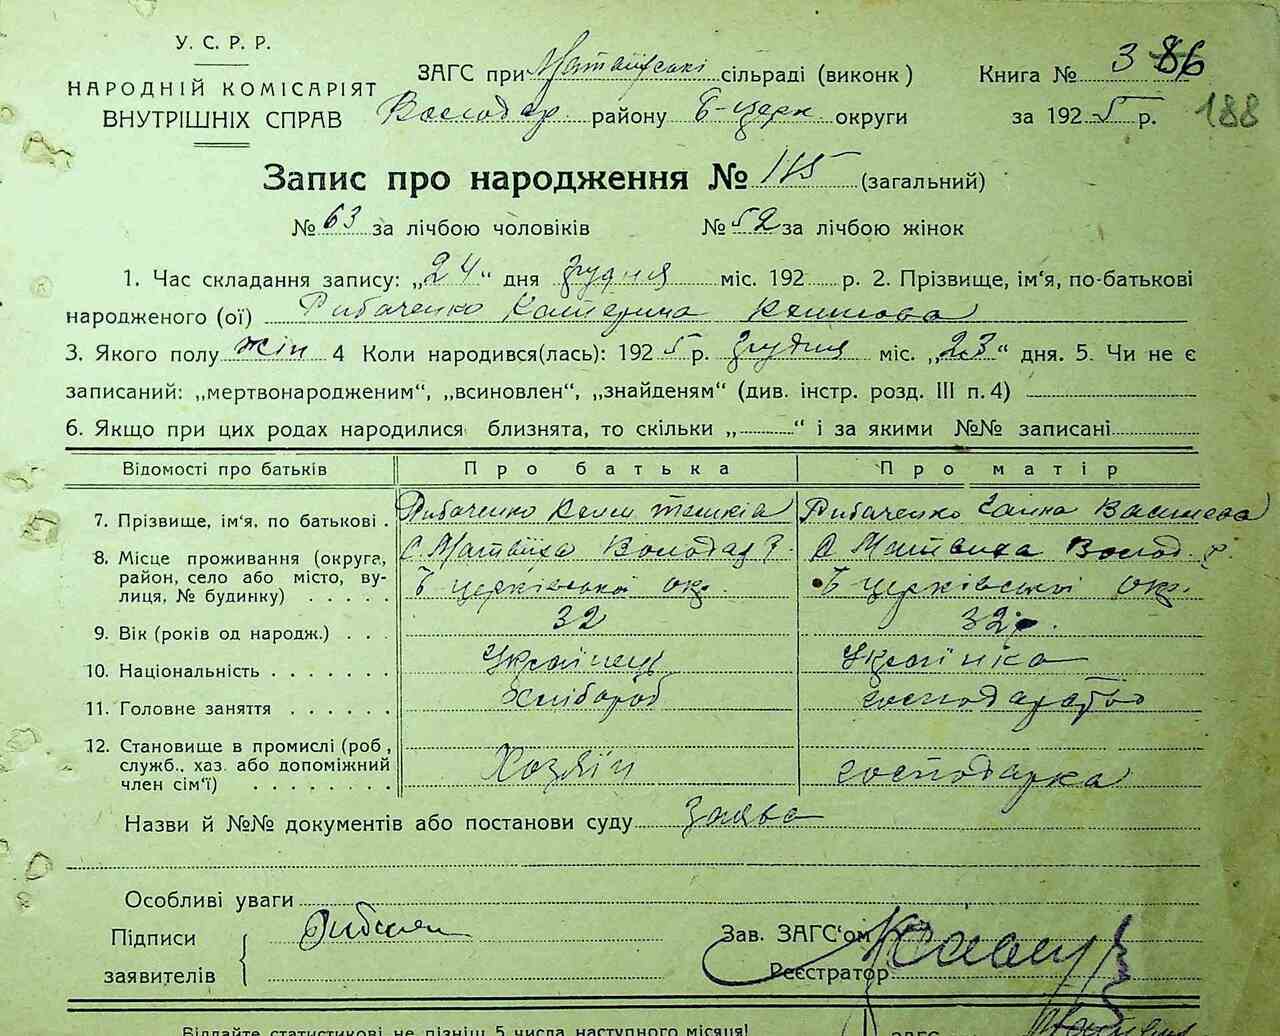 У. С. Р. Р.
НАРОДНІЙ КОМІСАРІЯТ
ВНУТРІШНІХ СПРАВ
ЗАГС при сільраді (виконк) Книга № 3 86
Володар. району Б-церк. округи за 1925 р. 188
Запис про народження № 115 (загальний)
№ 63 за лічбою чоловіків № 52 за лічбою жінок
1. Час складання запису: „24“ дня грудня міс. 192 р. 2. Прізвище, ім‘я, по-батькові
народженого (ої) Рибаченко Катерина Климова
3. Якого полу жін 4 Коли народився(лась): 1925 р. грудня міс. „23“ дня. 5. Чи не є
записаний: „мертвонародженим“, „всиновлен“, „знайденям“ (див. інстр. розд. III п. 4)
6. Якщо при цих родах народилися близнята, то скільки „ “ і за якими №№ записані
Відомості про батьків Про батька Про матір
7. Прізвище, ім‘я, по батькові . Рибаченко Клим Рибаченко Ганна Василева
8. Місце проживання (округа, с. Матвіиха Володар Р. с. Матвіиха Волод. р.
район, село або місто, ву- Б церківської окр. Б церківської окр.
лиця, № будинку)
9. Вік (років од народж.) . . . 32 32 р.
10. Національність Українець Українка
11. Головне заняття Хлібороб господарство
12. Становище в промислі (роб,
служб., хаз. або допоміжний Хозяїн господарка
член сім‘ї)
Назви й №№ документів або постанови суду заява
Особливі уваги
Підписи
заявителів
Зав. ЗАГС‘ом
Реєстратор
Віддайте статистикові не пізніш 5 числа наступного місяця!
ЗАГС